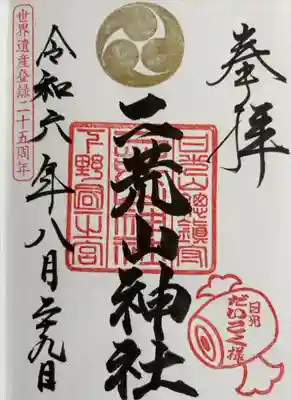 奉拝
二荒山神社
令和六年八月二十九日
世界遺産登録二十五周年
日光山総鎮守
下野国一之宮
日光
だいこく様